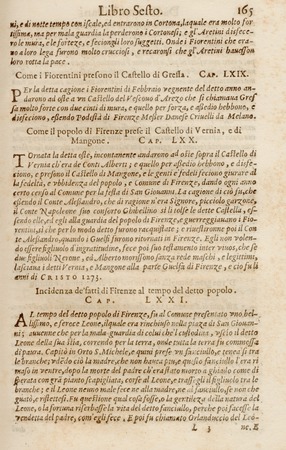 Libro Sesto. 165
ni, e di notte tempo con iscale, ed entrarono in Cortona, laquale era molto for
tissima, ma per mala guardia la perderono i Cortonesi; e gl'Aretini disfece-
ro le mura, e le forteze, e feciongli loro suggetti. Onde i Fiorentini che era-
no a loro lega furono molto crucciosi, e recaronsi che gl'Aretini hauesson
loro rotta la pace.
Come i Fiorentini presono il Castello di Gressa. CAP. LXIX.
PEr la detta cagione i Fiorentini di Febbraio vegnente del detto anno an-
darono ad oste a vn Castello del Vescouo d'Arezo che si chiamaua Gres
sa molto forte con due cinti di mura, e quello per forza, e assedio hebbono, e
disfeciono, essendo Podestà di Firenze Messer Danese Criuelli da Melano.
Come il popolo di Firenze prese il Castello di Vernia, e di
Mangone. CAP. LXX.
TOrnata la detta oste, incontanente andarono ad oste sopra il Castello di
Vernia ch'era de Conti Alberti; e quello per assedio hebbono, e disfe-
ciono, e presono il Castello di Mangone, e le genti e fedeli feciono giurare al
la fedeltà, e vbbidenza del popolo, e comune di Firenze, dando ogni anno
certo censo al Comune per la festa di San Giouanni. La cagione di ciò fu, che
essendo il Conte Alessandro, che di ragione n'era Signore, picciolo garzone,
il Conte Napoleone suo consorto Ghibellino si li tolse le dette Castella, es-
sendo elle, ed egli alla guardia del popolo di Firenze, guerreggiauano i Fio-
rentini, si che per lo modo detto furono racquistate; e riuestironne poi il Con
te Alessandro, quando i Guelfi furono ritornati in Firenze. Egli non volen-
do essere isfolgorato d'ingratitudine, fece poi suo testamento inter viuos, che se
due figliuoli Nerone, ed Alberto morissono sanza rede maschi, e legittimi,
lasciana i detti Vernia, e Mangone alla parte Guelfa di Firenze, e ciò fu li
anni di CRISTO 1273.
Incidenza de'fatti di Firenze al tempo del detto popolo.
CAP. LXXI.
AL tempo del detto popolo di Firenze, fu al Comune presentato vno bel-
lissimo, e forte Leone, ilquale era rinchiuso nella piaza di San Gioua-
ni; auuenne che per la mala guardia di colui che'l custodiua, vscì lo detto
Leone della sua stia, correndo per la terra, onde tutta la terra fu commossa
di paura. Capitò in Orto S. Michele, e quiui prese vn fanciullo, e tenealo tra
le branche; vdendo ciò la madre, che non hauea piue, e questo fanciullo l'era ri
maso in ventre, dopo la morte del padre ch'era stato morto a ghiado come di
sperata con grà pianto scapigliata, corse al Leone, e trassegli il figliuolo tra le
branche; e il Leone neuno male fece ne alla madre, ne al fanciullo, se non che
guatò, e ristettesi. Fu questione qual cosa fosse, o la gentileza della natura del
Leone, o la fortuna riserbasse la vita del detto fanciullo, perche poi facesse la
vendetta del padre, com'egli fece. E poi fu chiamato Orlanduccio del Leo-
L 3 ne. E